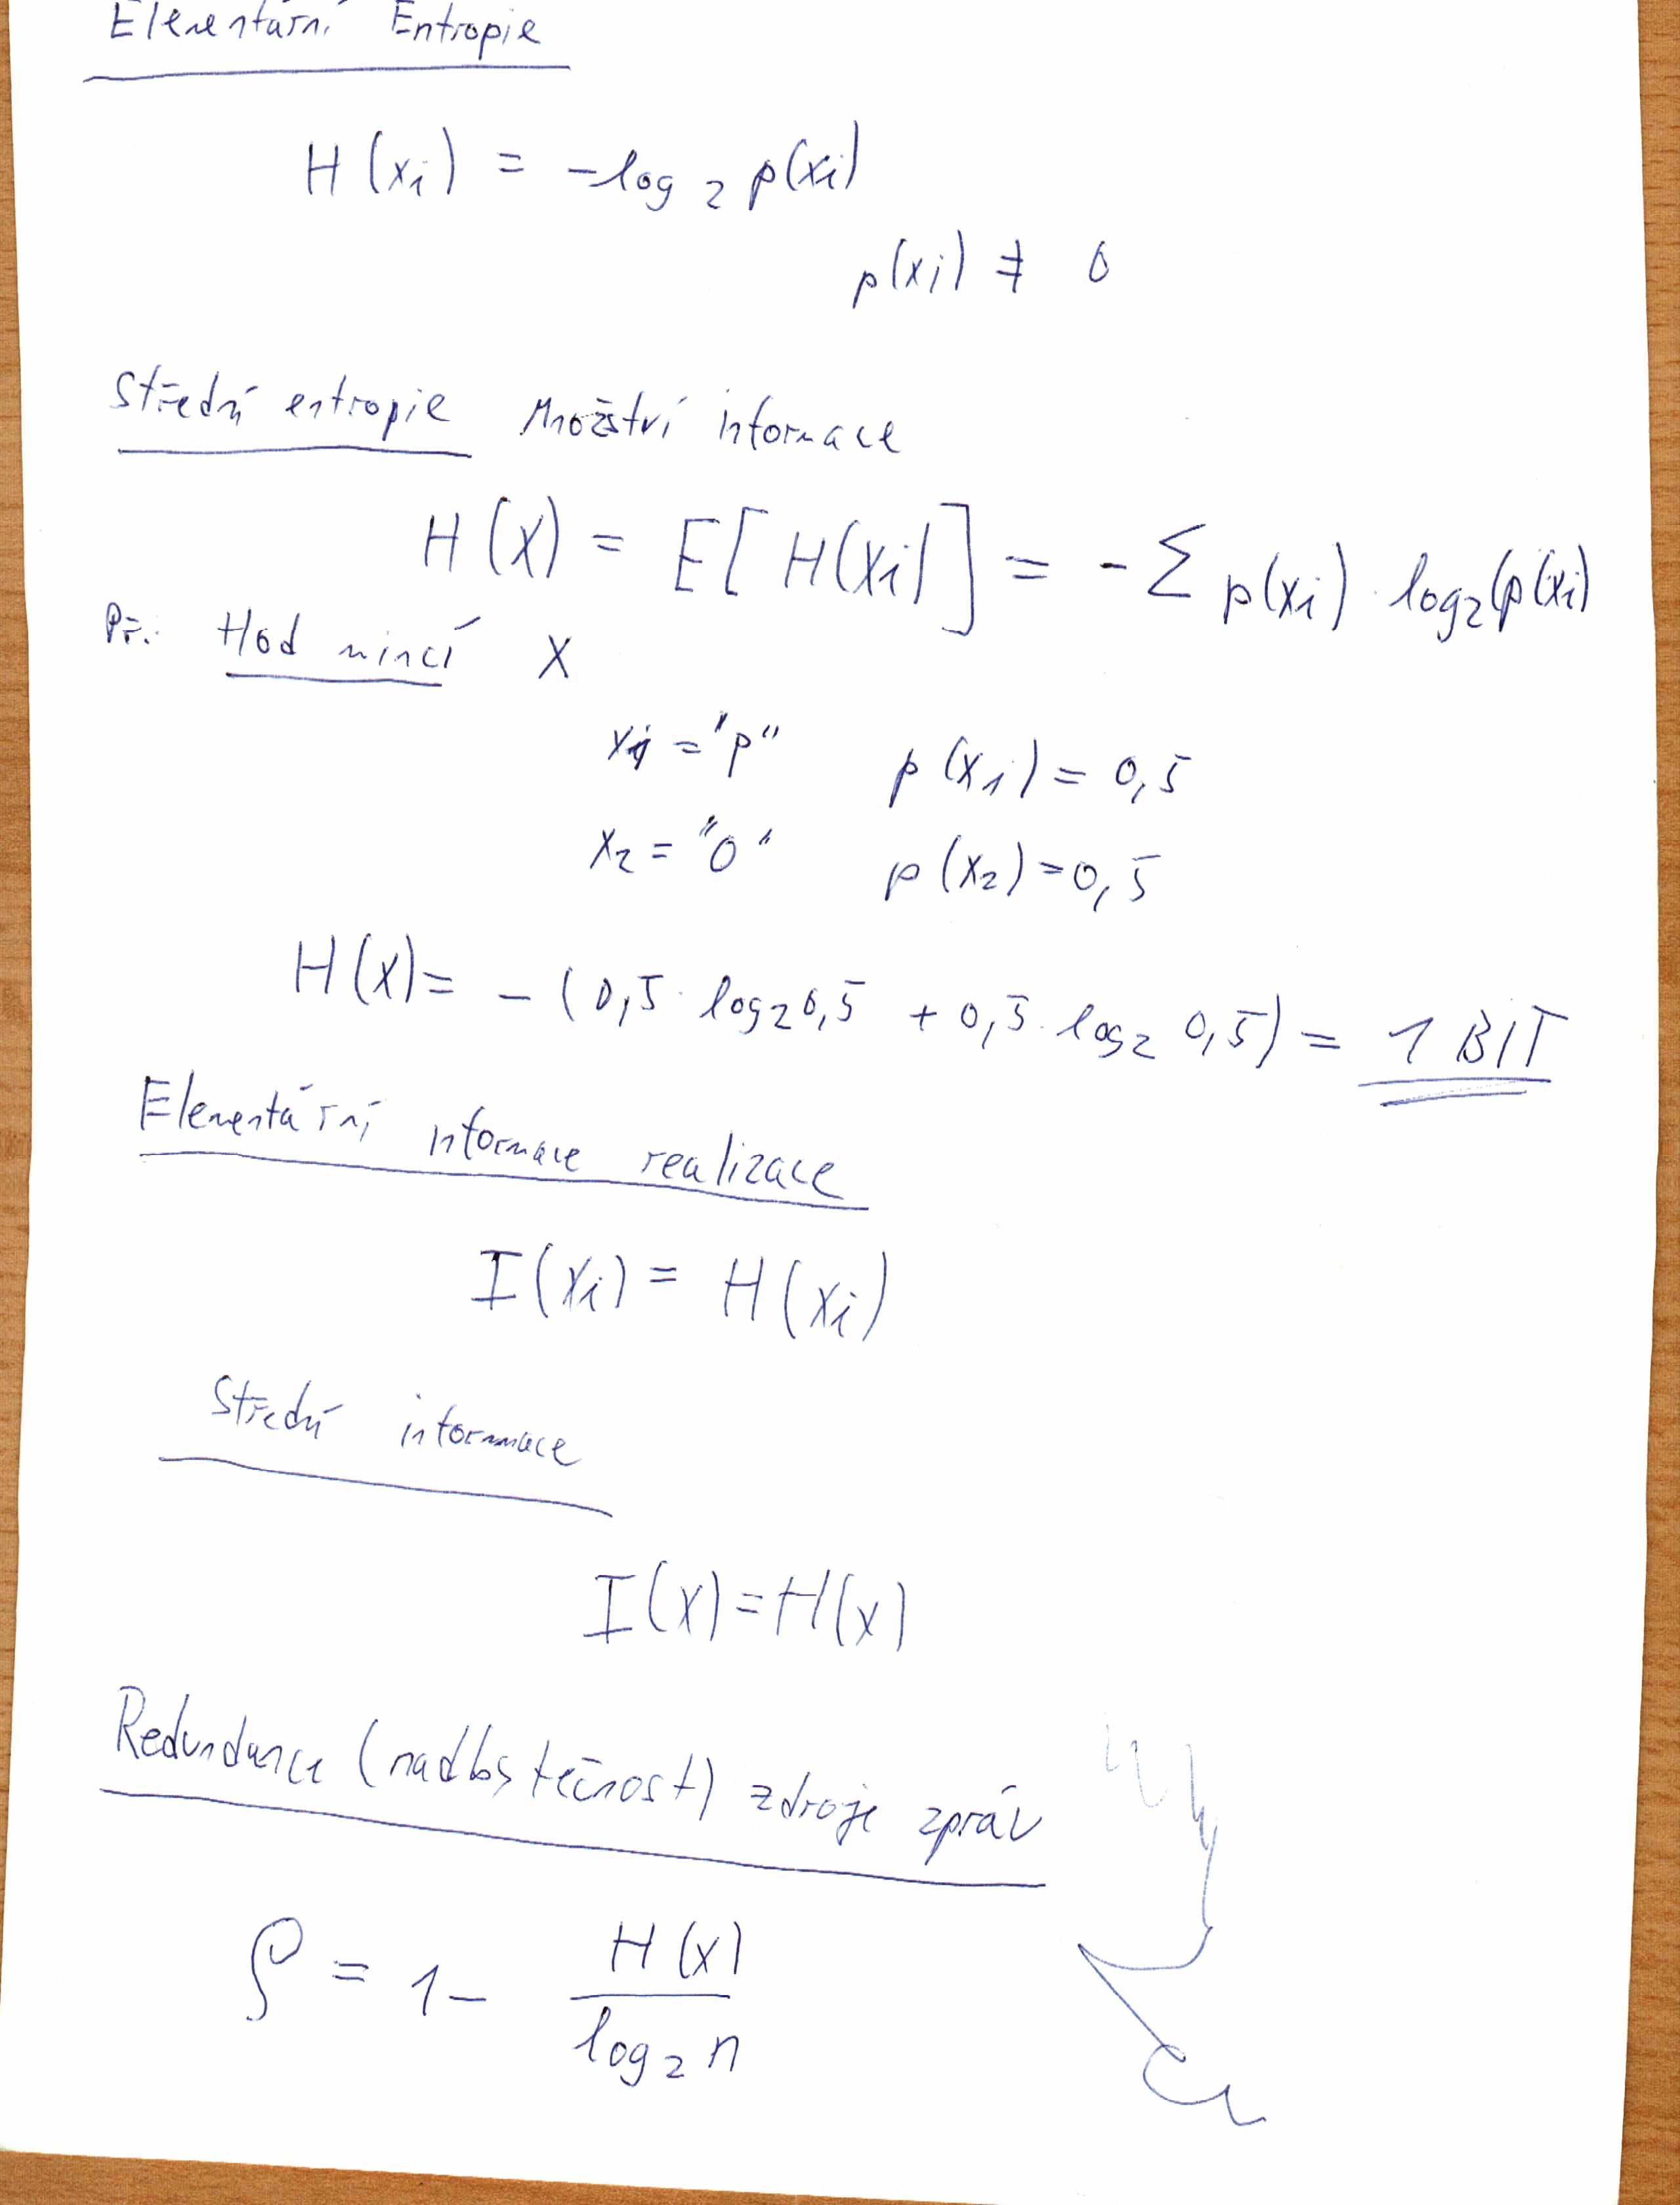 Elementární Entropie
H(xi) = -log2 p(xi)
p(xi) ≠ 0
Střední entropie Množství informace
H(X) = E[H(xi)] = -Σ p(xi) · log2(p(xi)
Př.: Hod mincí X
x1 = "p" p(x1) = 0,5
x2 = "0" p(x2) = 0,5
H(X) = -(0,5 · log2 0,5 + 0,5 · log2 0,5) = 1 BIT
Elementární informace realizace
I(xi) = H(xi)
Střední informace
I(x) = H(x)
Redundance (nadbstečnost) zdroje zpráv
ρ = 1 - H(x) / log2 n